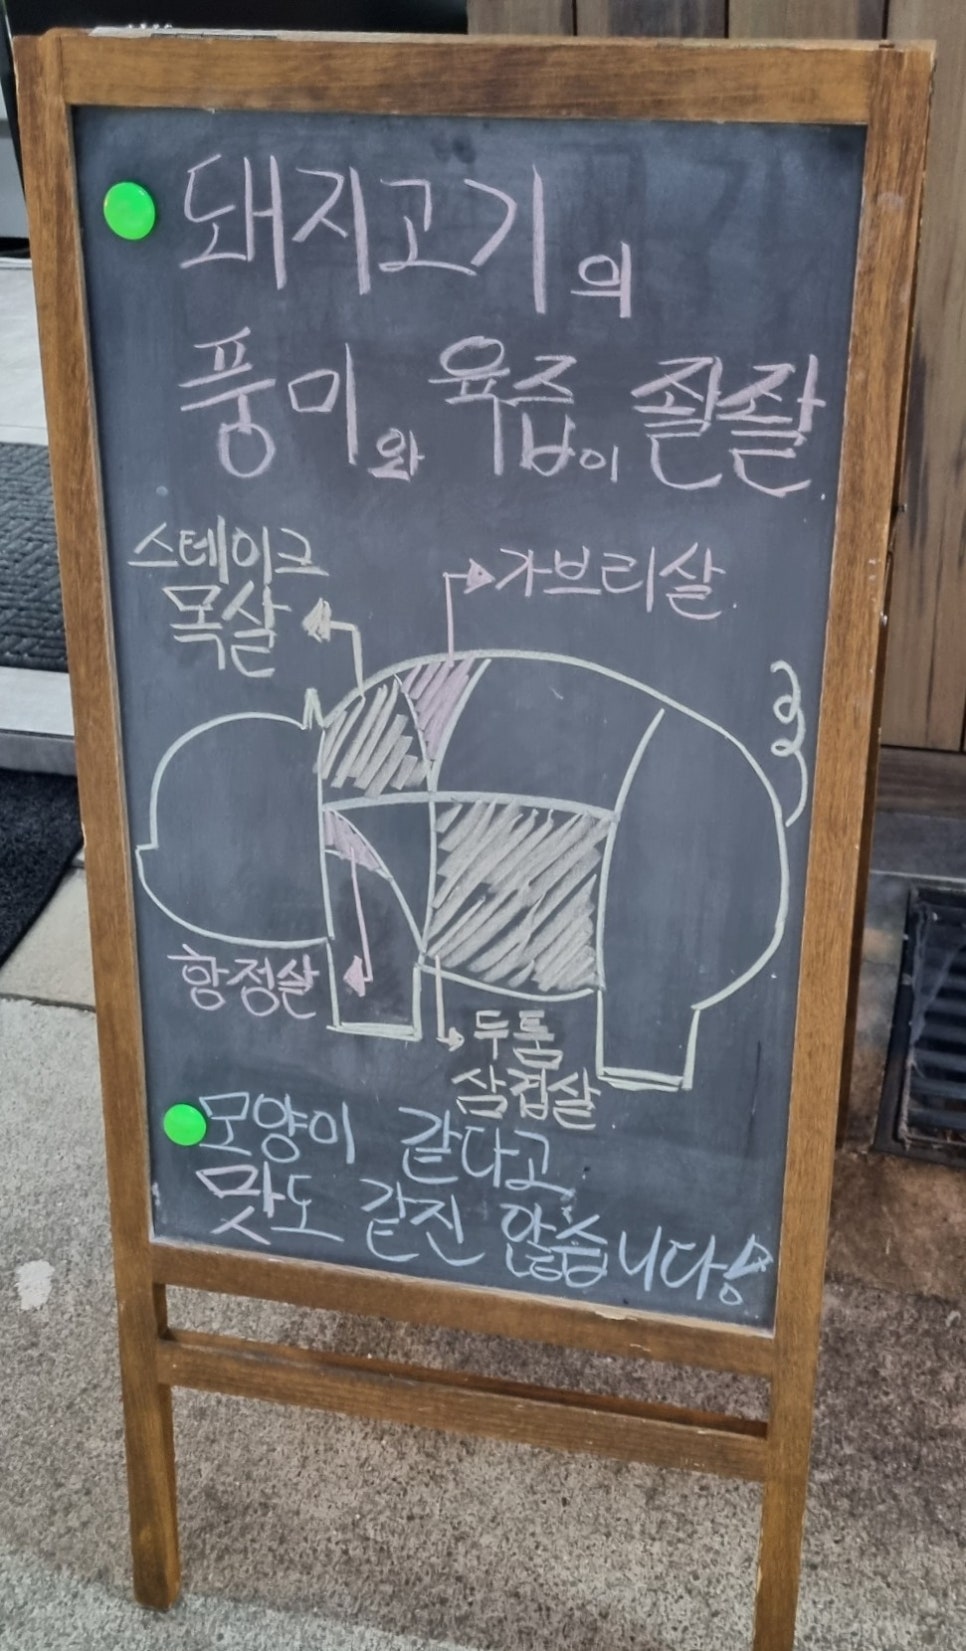 돼지고기의
풍미와 육즙이 좔좔
스테이크
목살
가브리살
항정살
두툼
삼겹살
모양이 같다고
맛도 같진 않습니다!